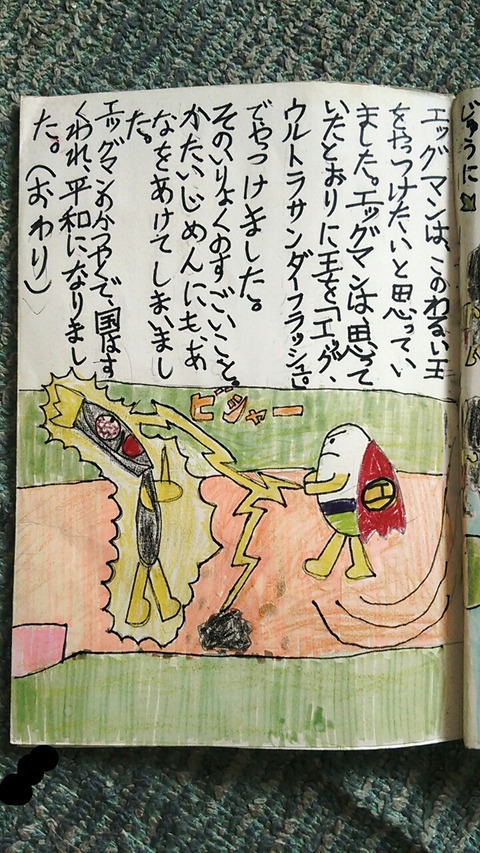 じゅうに
エッグマンは、このわるい王
をやっつけたいと思ってい
ました。エッグマンは、思って
いたとおりに王を「エッグ、
ウルトラサンダーフラッシュ」
でやっつけました。
そのいりょくのすごいこと。
かたいじめんにも、あ
なをあけてしまいまし
た。
エッグマンのかつやくで、国はす
くわれ、平和になりまし
た。(おわり)
ビジャー
エ